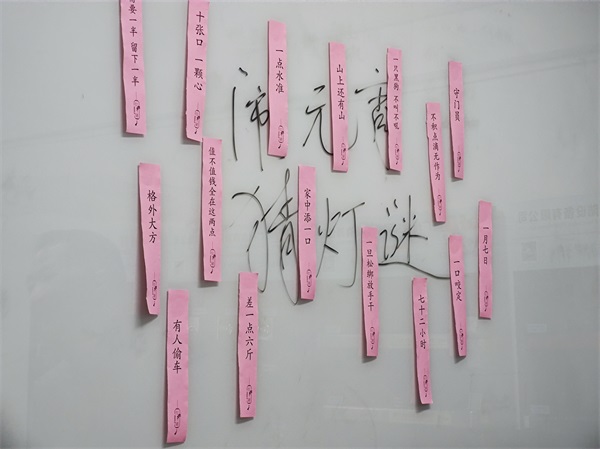 需要一半 留下一半
十张口 一颗心
一点水准
山上还有山
一只黑狗 不叫不吼
守门员
闹元宵
不积点滴无作为
格外大方
值不值钱全在这两点
家中添一口
猜灯谜
一旦松绑放手干
一口咬定
一月七日
有人偷车
差一点六斤
七十二小时